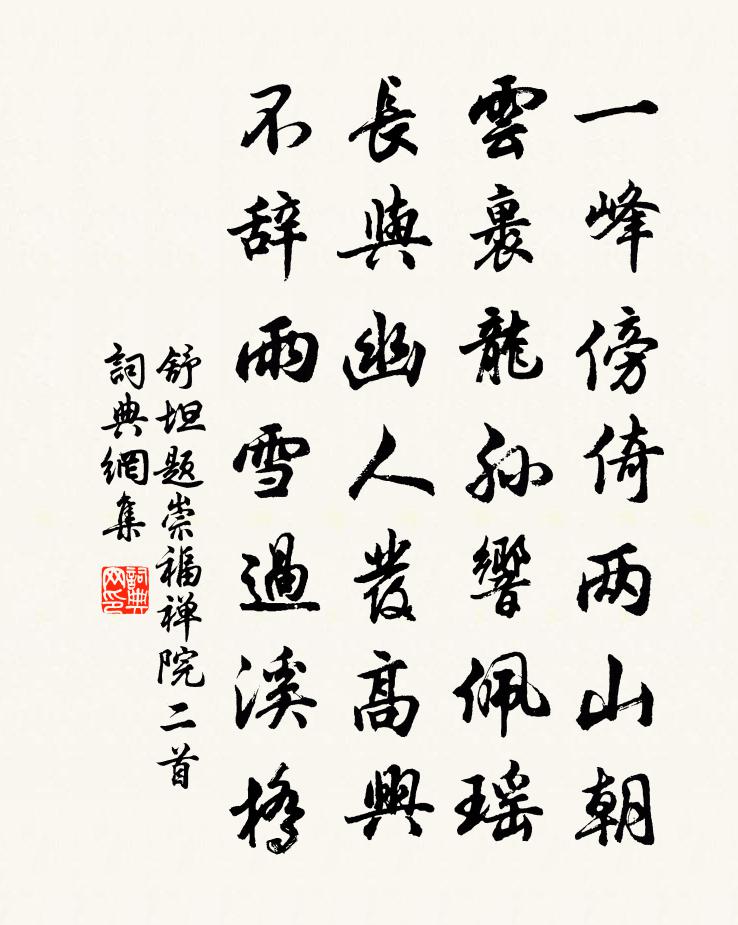 一峰傍倚两山朝
雲裏龍孫響佩瑶
長與幽人發高興
不辞雨雪過溪橋
舒坦题崇福禅院二首
詞典網集
詞典网印